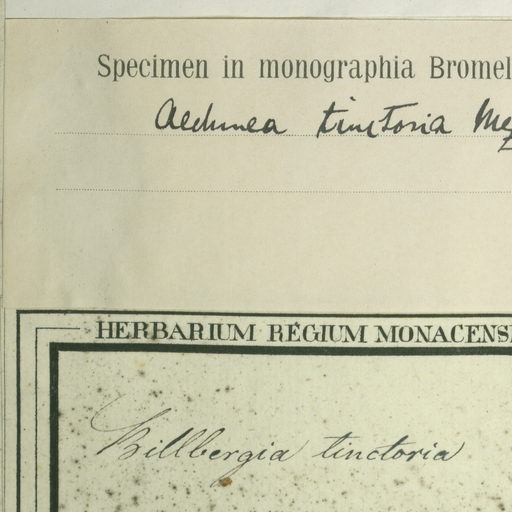 Specimen in monographia Bromel
Aechmea tinctoria Mez
HERBARIUM REGIUM MONACENS
Billbergia tinctoria